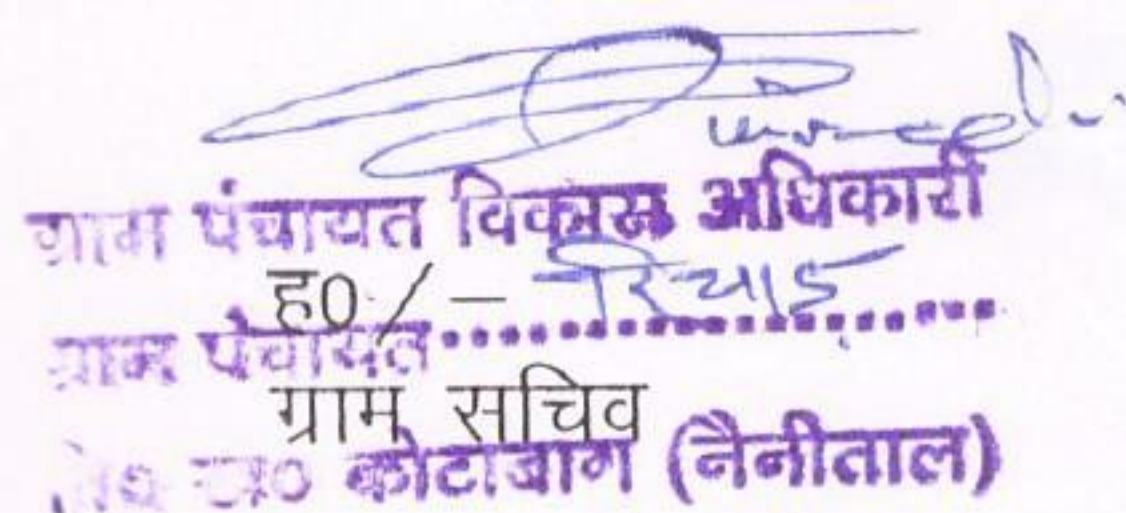 ग्राम पंचायत विकास अधिकारी
ह0 / –
ग्राम पंचायत....................
ग्राम सचिव
कोटाबाग (नैनीताल)